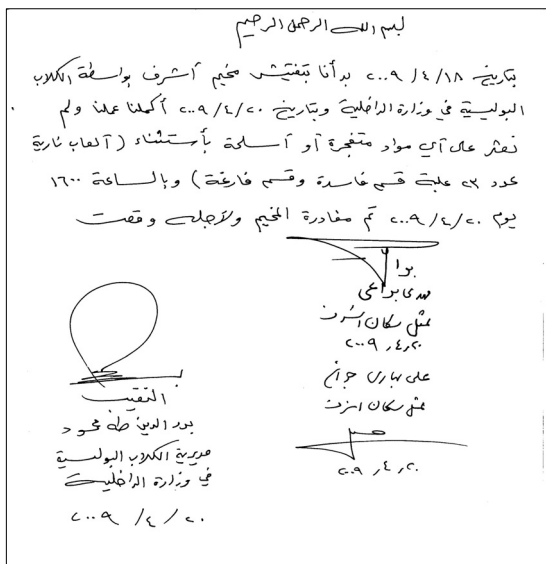 بسم الله الرحمن الرحيم
بتاريخ ٢٠٠٩/٤/١٨ بدأنا بتفتيش مخيم أشرف بواسطة الكلاب
البوليسية في وزارة الداخلية وبتاريخ ٢٠٠٩/٤/٢٠ أكملنا عملنا ولم
نعثر على أي مواد متفجرة أو أسلحة بأستثناء (ألعاب نارية
عدد ٣ علبة قسم فاسدة وقسم فارغة) وبالساعة ١٦٠٠
يوم ٢٠٠٩/٤/٢٠ تم مغادرة المخيم ولأجله وقعت
مهدي براعي
ممثل سكان اشرف
٢٠٠٩/٤/٢٠
علی
ممثل سكان اشرف
٢٠٠٩/٤/٢٠
النقيب
نور الدين طه محمود
مديرية الكلاب البوليسية
في وزارة الداخلية
٢٠٠٩/٤/٢٠